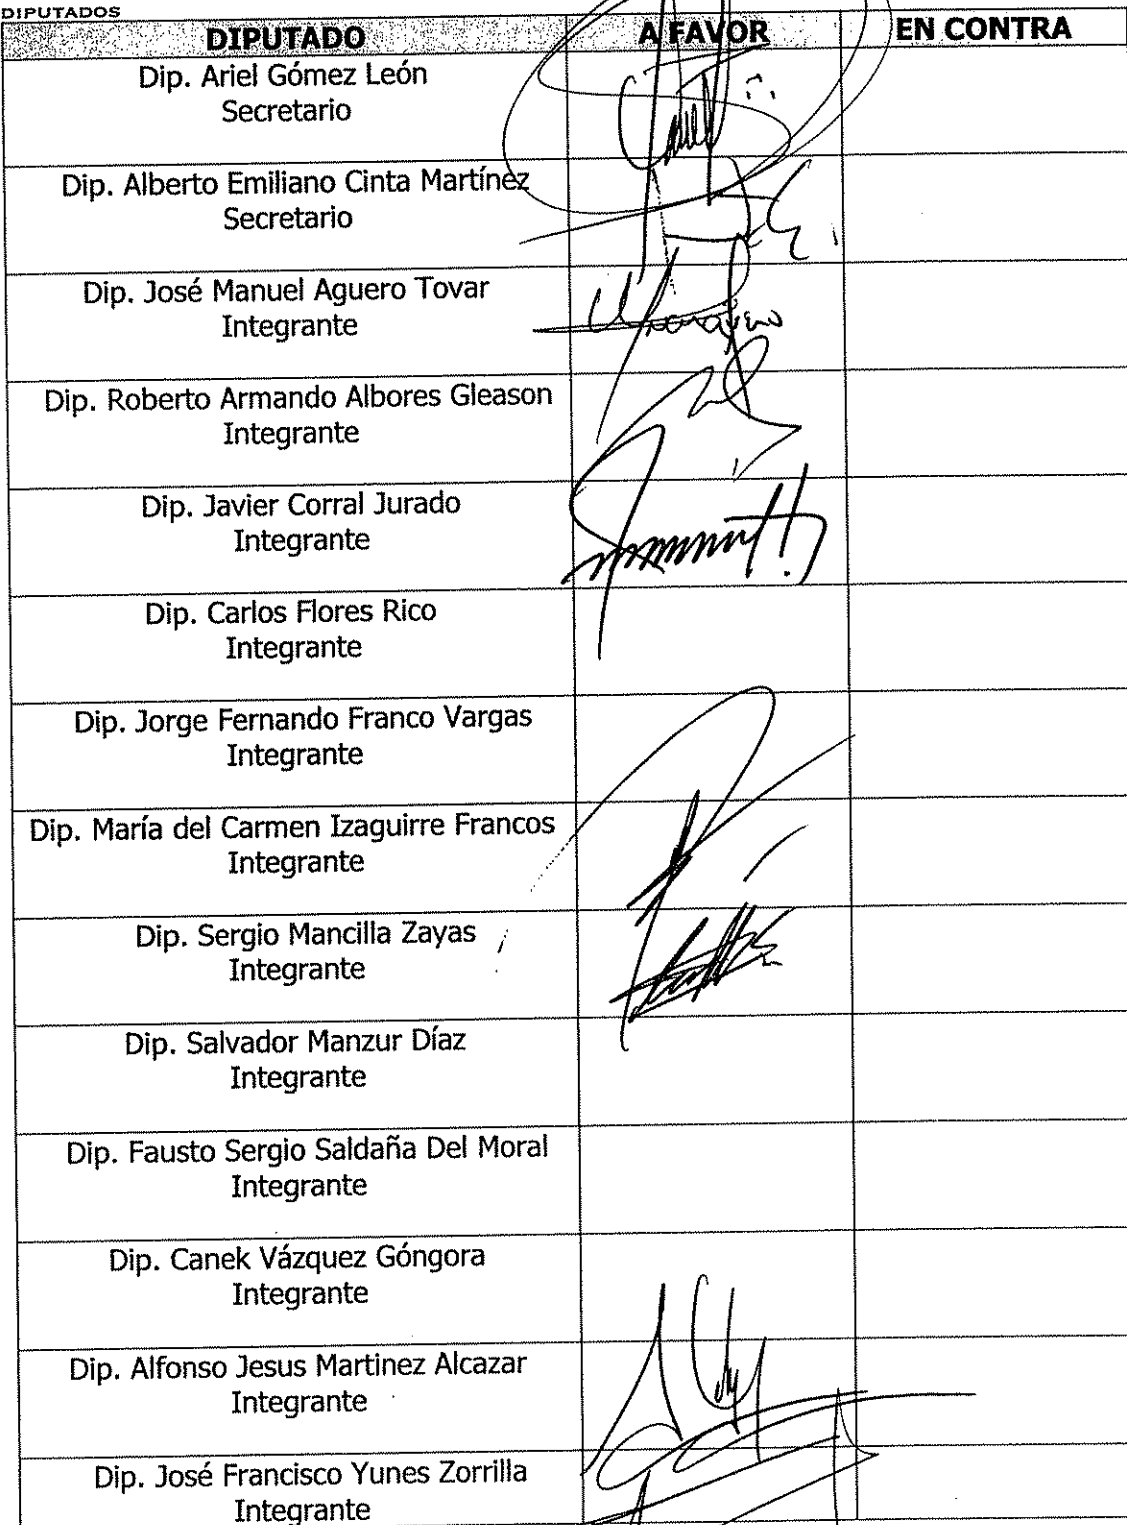 DIPUTADOS
DIPUTADO A FAVOR EN CONTRA
Dip. Ariel Gómez León
Secretario
Dip. Alberto Emiliano Cinta Martínez
Secretario
Dip. José Manuel Aguero Tovar
Integrante
Dip. Roberto Armando Albores Gleason
Integrante
Dip. Javier Corral Jurado
Integrante
Dip. Carlos Flores Rico
Integrante
Dip. Jorge Fernando Franco Vargas
Integrante
Dip. María del Carmen Izaguirre Francos
Integrante
Dip. Sergio Mancilla Zayas
Integrante
Dip. Salvador Manzur Díaz
Integrante
Dip. Fausto Sergio Saldaña Del Moral
Integrante
Dip. Canek Vázquez Góngora
Integrante
Dip. Alfonso Jesus Martinez Alcazar
Integrante
Dip. José Francisco Yunes Zorrilla
Integrante